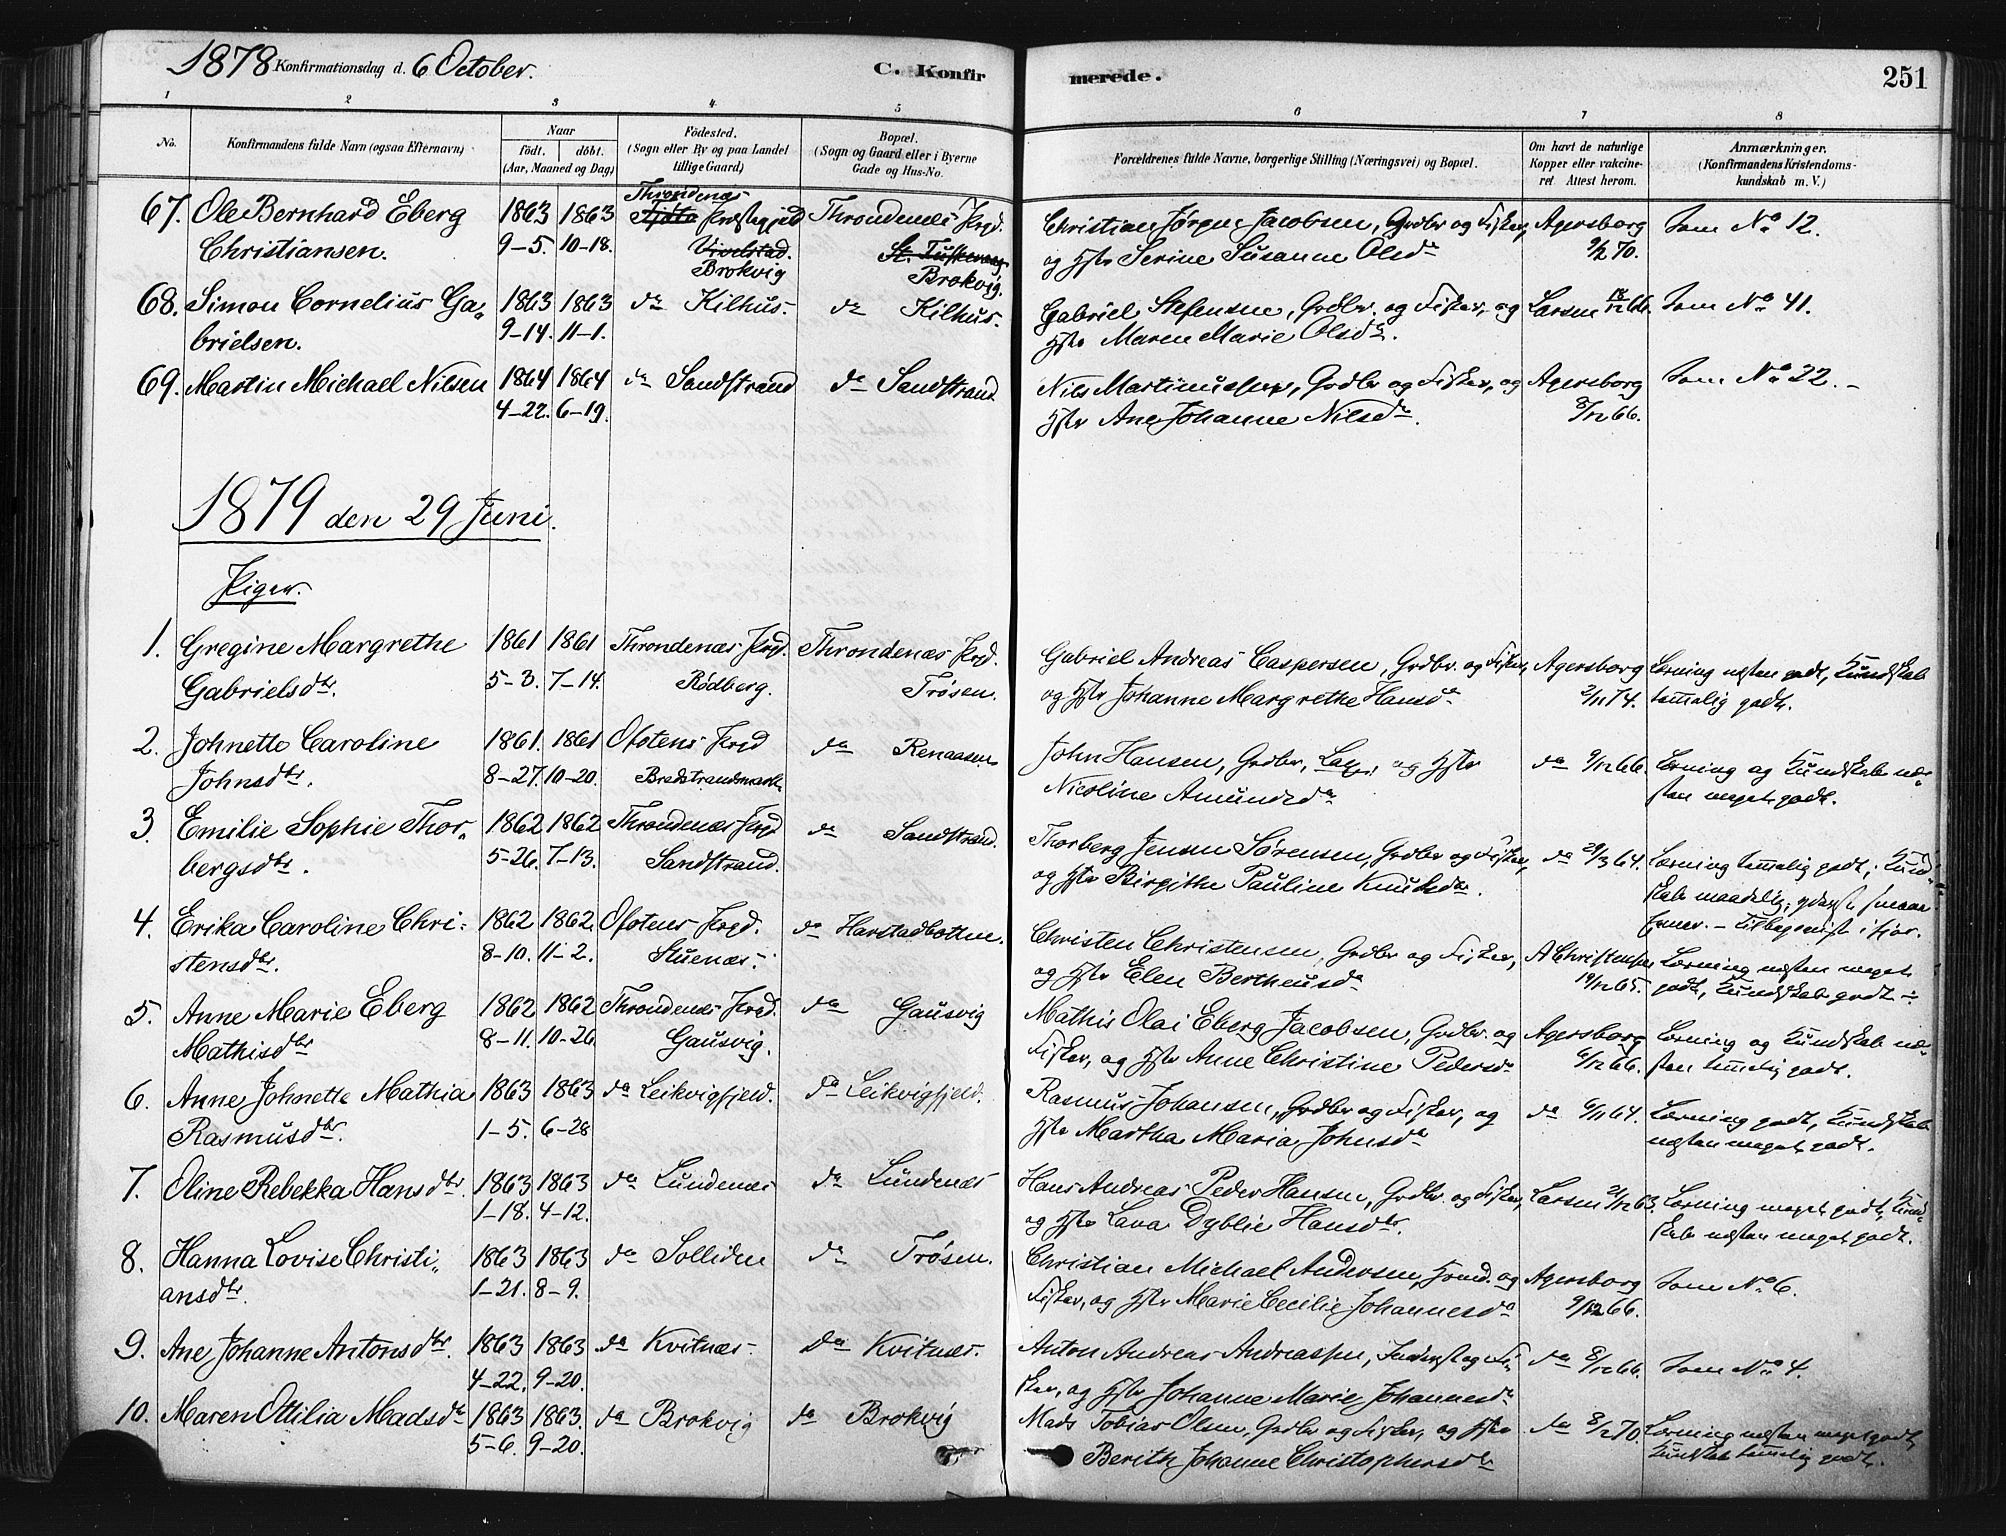 1878 Konfirmationsdag d. 6 October.
C. Konfirmerede.
251
1 2 3 4 5 6 7 8
No.
Konfirmandens fulde Navn (ogsaa Efternavn)
Naar
født. døbt.
(Aar, Maaned og Dag)
Fødested.
(Sogn eller By og paa Landet
tillige Gaard)
Bopæl.
(Sogn og Gaard eller i Byerne
Gade og Hus-No.
Forældrenes fulde Navne, borgerlige Stilling (Næringsvei) og Bopæl.
Om havt de naturlige
Kopper eller vakcine-
ret. Attest herom.
Anmærkninger.
(Konfirmandens Kristendoms-
kundskab m. V.)
67. Ole Bernhard Eberg 1863 1863 Throndenæs Præstegjeld Throndenæs Prgd. Christian Jørgen Jacobsen, Grdbr og Fisker, Agersborg Som No 12.
Christiansen. 9-5. 10-18. Brokvig Brokvig. og Hstr Serine Susanne Olsdr 9/2 70.
68. Simon Cornelius Ga- 1863 1863 do Kilhus. do Kilhus. Gabriel Stefensen, Grdbr. og Fisker, og Larsen 18/12 66. Som No 41.
brielsen. 9-14. 11-1. Hstr Maren Marie Olsdr.
69. Martin Michael Nilsen 1864 1864 do Sandstrand do Sandstrand Nils Martinussen, Grdbr og Fisker, og Agersborg Som No 22.-
4-22. 6-19. Hstr Ane Johanne Nilsdr. 8/12 66.
1879 den 29 Juni.
Piger.
1. Gregine Margrethe 1861 1861 Throndenæs Prgd. Throndenæs Prgd. Gabriel Andreas Caspersen, Grdbr. og Fisker, Agersborg Læsning næsten godt, Kundskab
Gabrielsdtr. 5-3. 7-14. Rødberg. Trøsen. og Hstr Johanne Margrethe Hansdr 2/11 74. temmelig godt.
2. Johnette Caroline 1861. 1861 Ofotens Prgd do Renaasen John Hansen, Grdbr, Lap, og Hstr do 9/12 66. Læsning og Kundskab næ-
Johnsdtr. 8-27. 10-20. Bredstrandmark Nicoline Amundsdr sten meget godt.
3. Emilie Sophie Thor- 1862 1862 Throndenæs Prgd do Sandstrand. Thorberg Jensen Sørensen, Grdbr og Fisker, do 29/3 64. Læsning temmelig godt, Kund-
bergsdtr. 5-26. 7-13. Sandstrand. og Hstr Birgithe Pauline Knudsdr. skab maadelig;
4. Erika Caroline Chri- 1862 1862. Ofotens Prgd. do Harstadbotten. Christen Christensen, Grdbr og Fisker, A Christensen Læsning næsten meget
stensdtr. 8-10. 11-2. Stuenæs. og Hstr Elen Bertheusdr 19/12 65. godt, Kundskab godt
5. Anne Marie Eberg 1862 1862 Throndenæs Prgd. do Gausvig Mathis Olai Eberg Jacobsen, Grdbr. og Agersborg Læsning og Kundskab næ-
Mathisdtr 8-11. 10-26. Gausvig. Fisker, og Hstr Anne Christine Pedersdr 6/12 66. sten temmelig godt.
6. Anne Johnette Mathia 1863 1863 do Leikvigfjeld. do Leikvigfjeld. Rasmus Johansen, Grdbr og Fisker, og do 6/11 64. Læsning godt, Kundskab
Rasmusdtr. 1-5. 6-28 Hstr Martha Maria Johnsdr næsten meget godt.
7. Oline Rebekka Hansdtr. 1863 1863 do Lundenæs do Lundenæs Hans Andreas Peder Hansen, Grdbr. og Fisker, Larsen 21/12 63. Læsning meget godt, Kund-
1-18. 4-12. og Hstr Lava Dyblie Hansdtr. skab næsten meget godt.
8. Hanna Lovise Christi- 1863 1863 do Solliden do Trøsen. Christian Michael Andersen, Husmd. og Agersborg Som No 6.
ansdtr. 1-21. 8-9. Fisker, og Hstr Marie Cecilie Johannesdr 9/12 66.
9. Ane Johanne Antonsdtr. 1863 1863 do Kvitnæs do Kvitnæs. Anton Andreas Andreassen, Inderst og Fi- do 8/12 66. Som No 4.
4-22. 9-20. sker, og Hstr Johanne Marie Johannesdr
10. Maren Ottilia Madsdtr 1863 1863. do Brokvig do Brokvig Mads Tobias Olsen, Grdbr og Fisker, og Hstr do 8/2 70. Læsning næsten meget godt,
5-6. 9-20. Berith Johanne Christophersdr Kundskab temmelig godt.